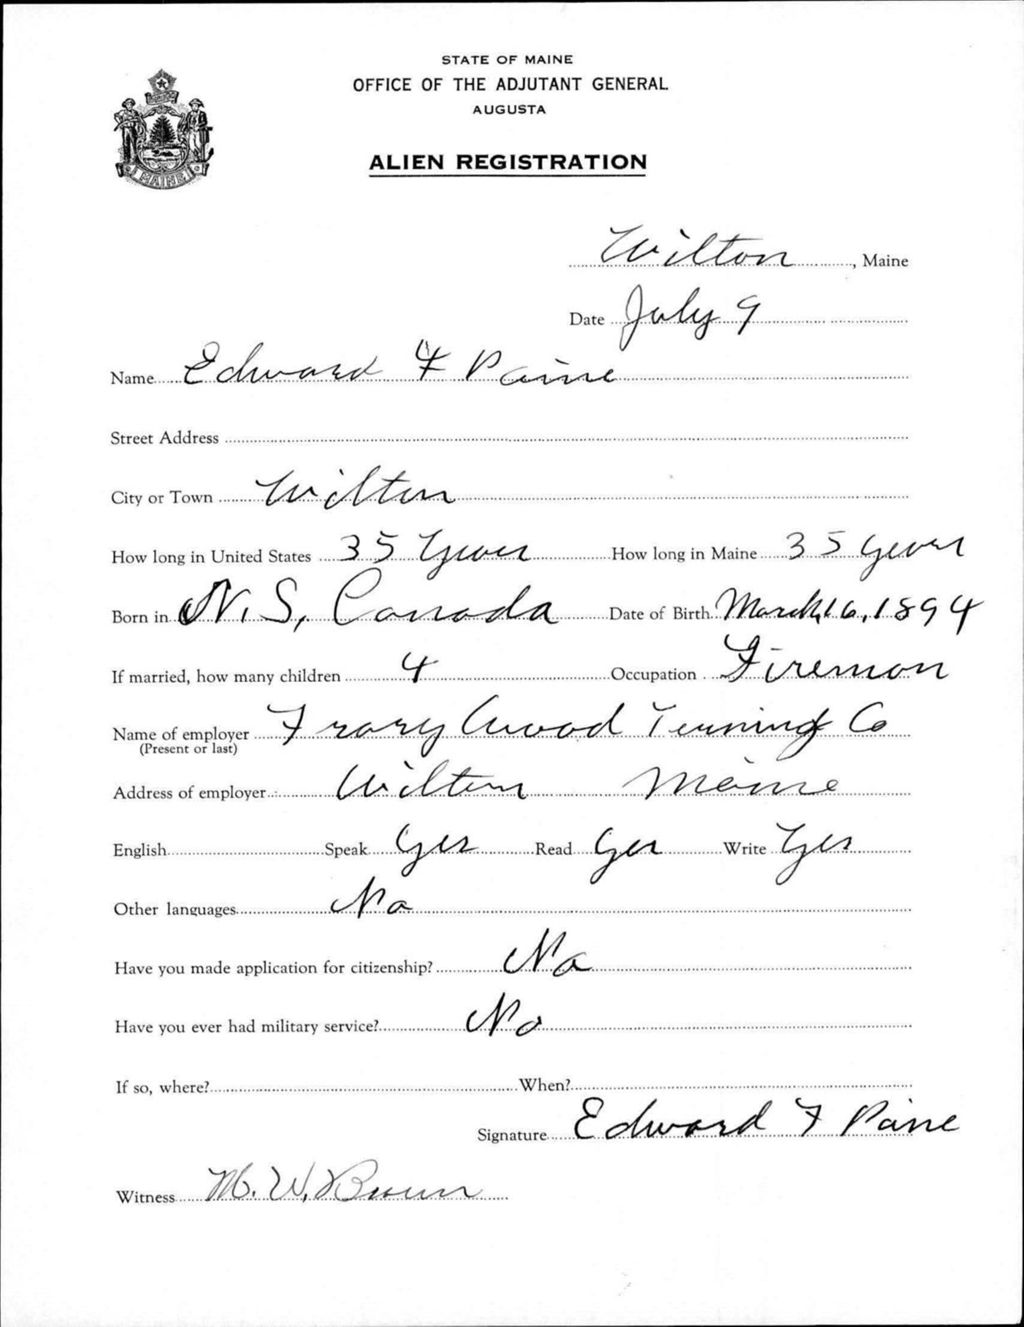 STATE OF MAINE
OFFICE OF THE ADJUTANT GENERAL
AUGUSTA
ALIEN REGISTRATION
MAINE
Wilton, Maine
Date July 9
Name Edward F Paine
Street Address
City or Town Wilton
How long in United States 35 Years How long in Maine 35 years
Born in N.S, Canada Date of Birth March 16, 1894
If married, how many children 4 Occupation Firemon
Name of employer Frary Wood Turning Co
(Present or last)
Address of employer Wilton Maine
English Speak Yes Read Yes Write Yes
Other languages No
Have you made application for citizenship? No
Have you ever had military service? No
If so, where? When?
Signature Edward F Paine
Witness M. W. Brown